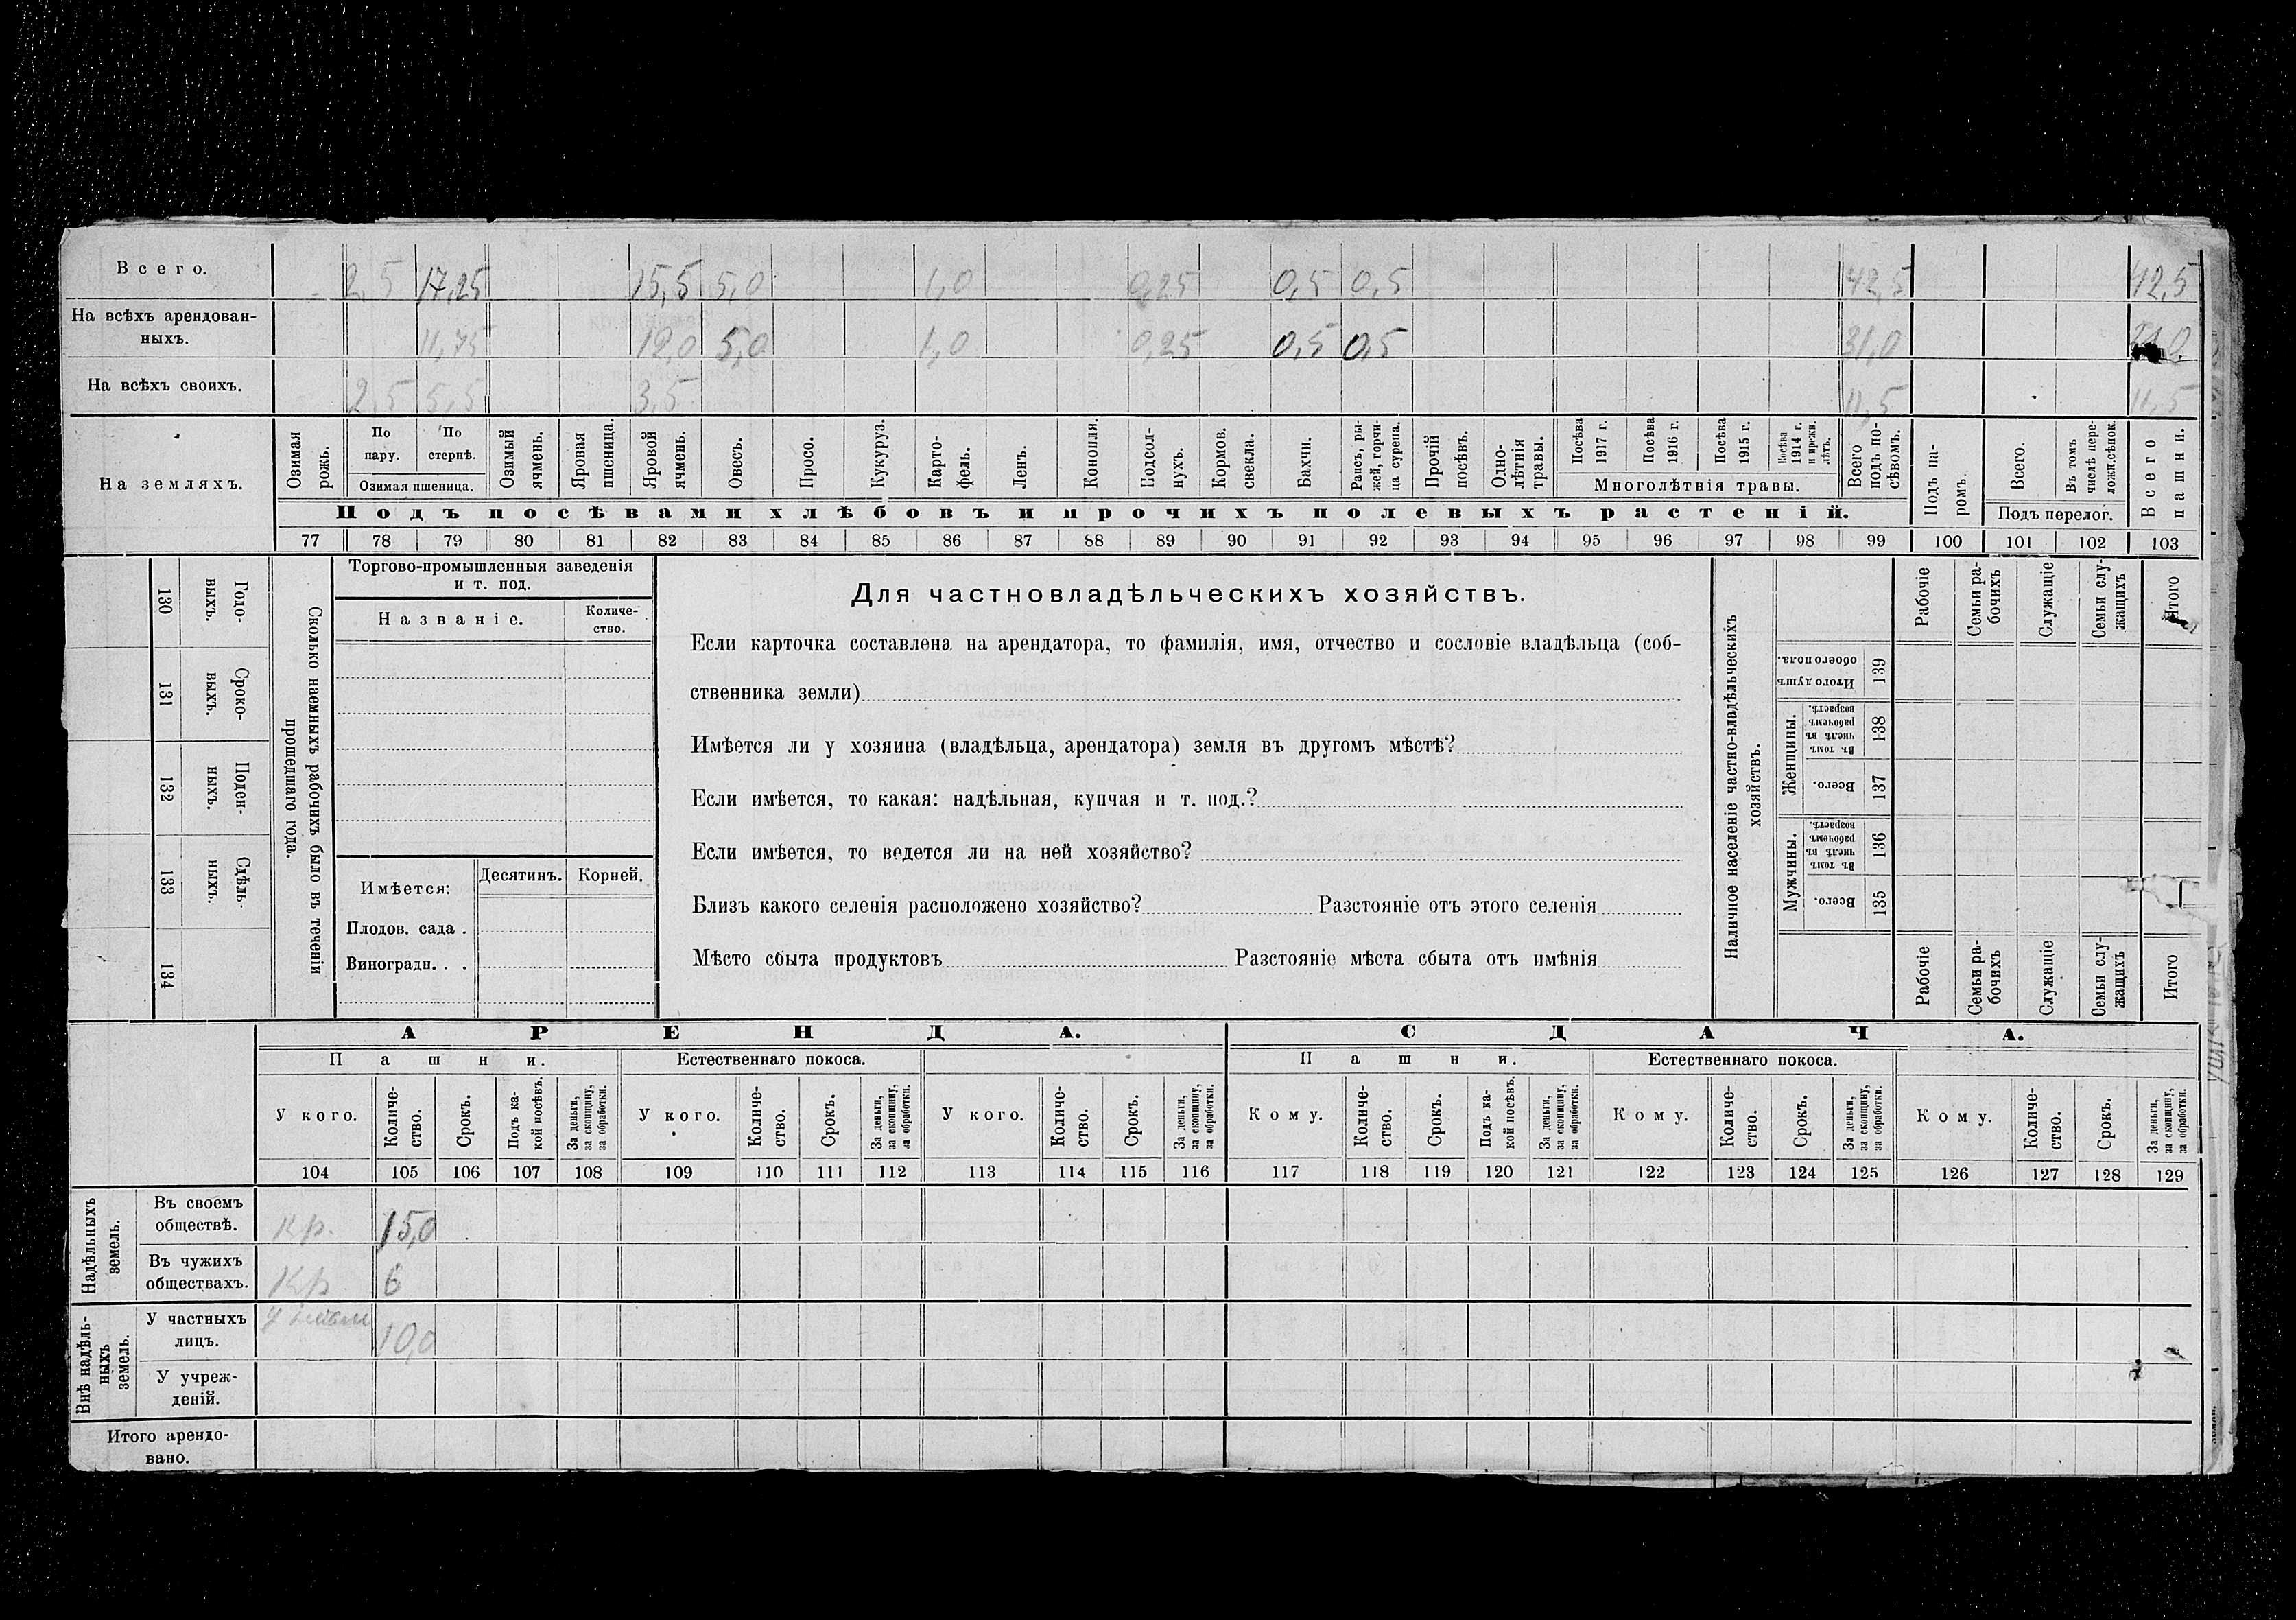 Всего. 2,5 17,25 15,5 5,0 1,0 0,25 0,5 0,5 42,5 42,5
На всѣхъ арендован-
ныхъ. 11,75 12,0 5,0 1,0 0,25 0,5 0,5 31,0
На всѣхъ своихъ. 2,5 5,5 3,5 11,5 11,5
На земляхъ.
Озимая рожь.
По пару.
По стернѣ.
Озимая пшеница.
Озимый ячмень.
Яровая пшеница.
Яровой ячмень.
Овесъ.
Просо.
Кукуруз.
Карто-
фель.
Ленъ.
Конопля.
Подсол-
нухъ.
Кормов. свекла.
Бахчи.
Рапсъ, ры-
жей, горчи-
ца сурепа.
Прочій посѣвъ.
Одно-
лѣтнія
травы.
Посѣва 1917 г.
Посѣва 1916 г.
Посѣва 1915 г.
Посѣва 1914 г. и прежн. лѣтъ.
Многолѣтнія травы.
Всего подъ по-
сѣвомъ.
Подъ па-
ромъ.
Всего.
Въ томъ числѣ пере-
ложн.сѣнок.
Подъ перелог.
Всего пашни.
Подъ посѣвами хлѣбовъ и прочихъ полевыхъ растеній.
77 78 79 80 81 82 83 84 85 86 87 88 89 90 91 92 93 94 95 96 97 98 99 100 101 102 103
130 Годо-
выхъ.
131 Сроко-
выхъ.
132 Поден-
ныхъ.
133 Сдѣль-
ныхъ.
134
Сколько наемныхъ рабочихъ было въ теченіи
прошедшаго года.
Торгово-промышленныя заведенія
и т. под.
Названіе.
Количе-
ство.
Имѣется:
Десятинъ. Корней.
Плодов. сада .
Виноградн. . .
Для частновладѣльческихъ хозяйствъ.
Если карточка составлена на арендатора, то фамилія, имя, отчество и сословіе владѣльца (соб-
ственника земли)
Имѣется ли у хозяина (владѣльца, арендатора) земля въ другомъ мѣстѣ?
Если имѣется, то какая: надѣльная, купчая и т. под.?
Если имѣется, то ведется ли на ней хозяйство?
Близъ какого селенія расположено хозяйство? Разстояніе отъ этого селенія
Мѣсто сбыта продуктовъ Разстояніе мѣста сбыта отъ имѣнія
Наличное населеніе частно-владѣльческихъ
хозяйствъ.
Итого душъ обоего пола. 139
Женщины.
Въ томъ числѣ въ рабочемъ возрастѣ. 138
Всего. 137
Мужчины.
Въ томъ числѣ въ рабочемъ возрастѣ. 136
Всего. 135
Рабочіе
Семьи ра-
бочихъ
Служащіе
Семьи слу-
жащихъ
Итого
Рабочіе
Семьи ра-
бочихъ
Служащіе
Семьи слу-
жащихъ
Итого
АРЕНДА. СДАЧА.
Пашни. Естественнаго покоса. Пашни. Естественнаго покоса.
У кого.
Количе-
ство.
Срокъ.
Подъ ка-
кой посѣвъ.
За деньги,
за скопщину,
за обработки.
У кого.
Количе-
ство.
Срокъ.
За деньги,
за скопщину,
за обработки.
У кого.
Количе-
ство.
Срокъ.
За деньги,
за скопщину,
за обработки.
Кому.
Количе-
ство.
Срокъ.
Подъ ка-
кой посѣвъ.
За деньги,
за скопщину,
за обработки.
Кому.
Количе-
ство.
Срокъ.
За деньги,
за скопщину,
за обработки.
Кому.
Количе-
ство.
Срокъ.
За деньги,
за скопщину,
за обработки.
104 105 106 107 108 109 110 111 112 113 114 115 116 117 118 119 120 121 122 123 124 125 126 127 128 129
Надѣльныхъ
земель.
Въ своемъ
обществѣ. Кр. 15,0
Въ чужихъ
обществахъ. Кр 6
Внѣ надѣль-
ныхъ
земель.
У частныхъ
лицъ. 10,0
У учреж-
деній.
Итого арендо-
вано.